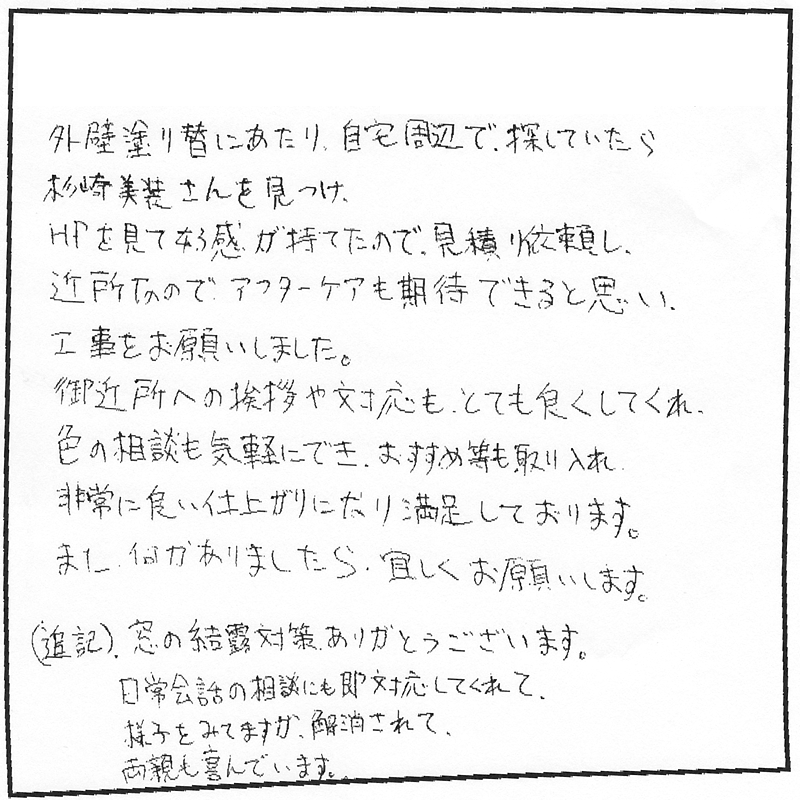 外壁塗り替にあたり、自宅周辺で、探していたら
杉崎美装さんを見つけ、
HPを見て好感が持てたので、見積り依頼し、
近所なので、アフターケアも期待できると思い、
工事をお願いしました。
御近所への挨拶や対応も、とても良くしてくれ、
色の相談も気軽にでき、おすすめ等も取り入れ、
非常に良い仕上がりになり満足しております。
また、何かありましたら、宜しくお願いします。
(追記)、窓の結露対策、ありがとうございます。
日常会話の相談にも即対応してくれて、
様子をみてますが、解消されて、
両親も喜んでいます。